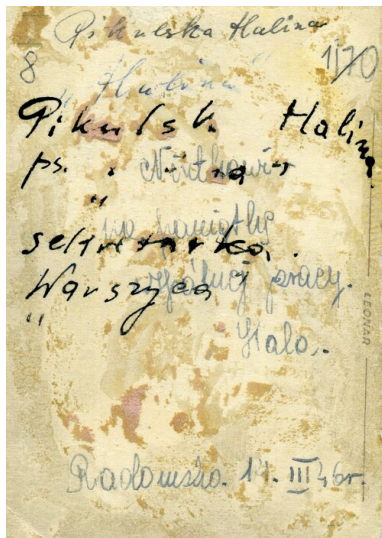 Pikulska Halina
8
1170
"Halina"
Pikulsk. Halina
ps.
na pamiątkę
sekretarka.
wspólnej pracy.
Warszyca
Hala.
LEONAR
Radomsko. 14. III 46r.